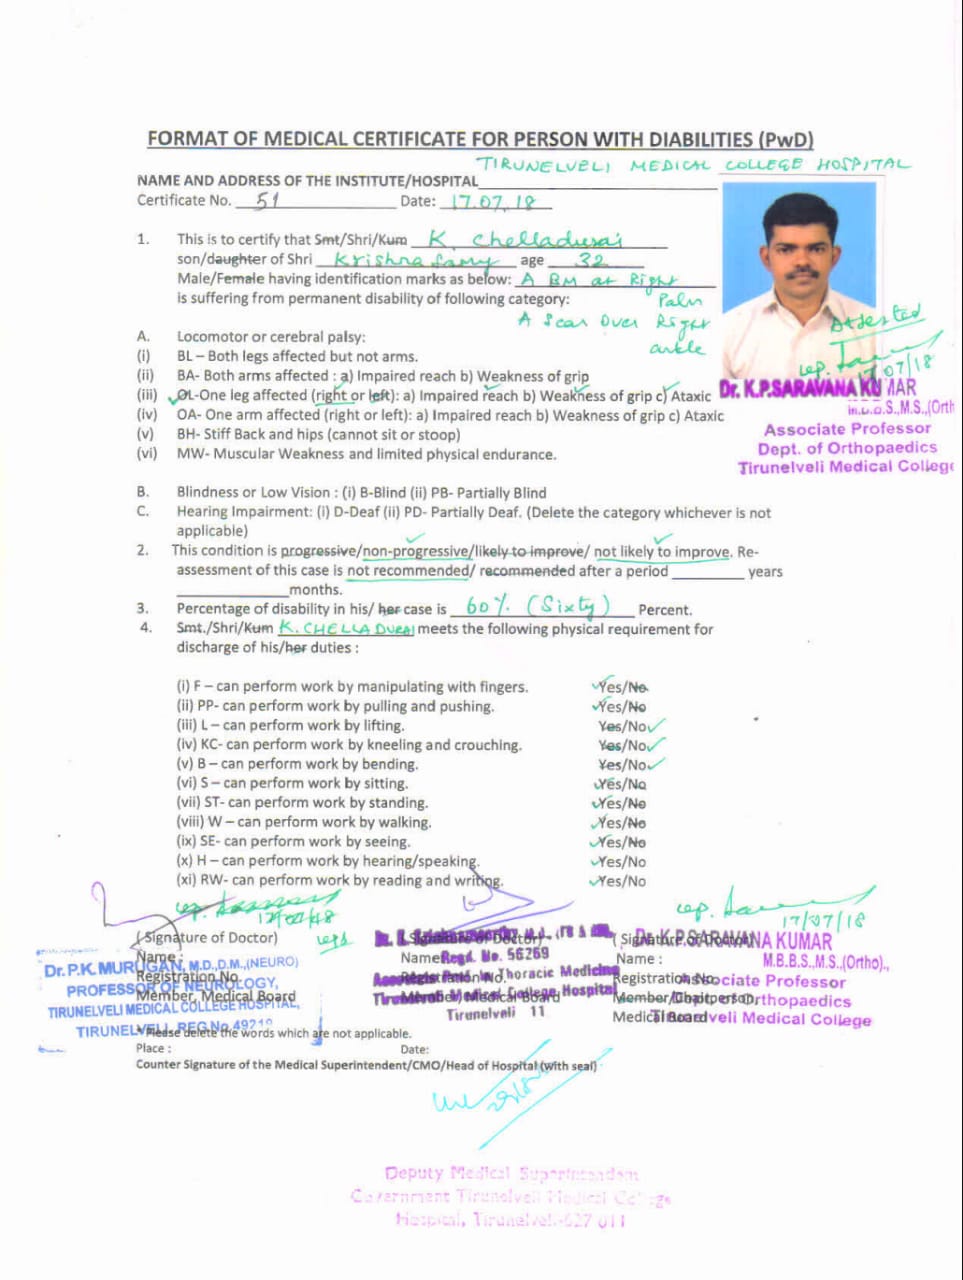 FORMAT OF MEDICAL CERTIFICATE FOR PERSON WITH DIABILITIES (PwD)
TIRUNELVELI MEDICAL COLLEGE HOSPITAL
NAME AND ADDRESS OF THE INSTITUTE/HOSPITAL
Certificate No. 51 Date: 17.07.18
1. This is to certify that Smt/Shri/Kum K. Chelladurai
son/daughter of Shri Krishna Samy age 32
Male/Female having identification marks as below: A BM at Right
is suffering from permanent disability of following category: Palm
A Scar Over Right
ankle
Attested
17/07/18
Dr. K.P.SARAVANA KUMAR
M.B.B.S.,M.S.,(Orth
Associate Professor
Dept. of Orthopaedics
Tirunelveli Medical College
A. Locomotor or cerebral palsy:
(i) BL – Both legs affected but not arms.
(ii) BA- Both arms affected : a) Impaired reach b) Weakness of grip
(iii) OL-One leg affected (right or left): a) Impaired reach b) Weakness of grip c) Ataxic
(iv) OA- One arm affected (right or left): a) Impaired reach b) Weakness of grip c) Ataxic
(v) BH- Stiff Back and hips (cannot sit or stoop)
(vi) MW- Muscular Weakness and limited physical endurance.
B. Blindness or Low Vision : (i) B-Blind (ii) PB- Partially Blind
C. Hearing Impairment: (i) D-Deaf (ii) PD- Partially Deaf. (Delete the category whichever is not
applicable)
2. This condition is progressive/non-progressive/likely to improve/ not likely to improve. Re-
assessment of this case is not recommended/ recommended after a period ________ years
________ months.
3. Percentage of disability in his/ her case is 60% (Sixty) Percent.
4. Smt./Shri/Kum K. CHELLADURAI meets the following physical requirement for
discharge of his/her duties :
(i) F – can perform work by manipulating with fingers. Yes/No
(ii) PP- can perform work by pulling and pushing. Yes/No
(iii) L – can perform work by lifting. Yes/No
(iv) KC- can perform work by kneeling and crouching. Yes/No
(v) B – can perform work by bending. Yes/No
(vi) S – can perform work by sitting. Yes/No
(vii) ST- can perform work by standing. Yes/No
(viii) W – can perform work by walking. Yes/No
(ix) SE- can perform work by seeing. Yes/No
(x) H – can perform work by hearing/speaking. Yes/No
(xi) RW- can perform work by reading and writing. Yes/No
17/07/18
(Signature of Doctor)
Name :
Registration No.
Member, Medical Board
Dr.P.K. MURUGAN, M.D.,D.M.,(NEURO)
PROFESSOR OF NEUROLOGY,
TIRUNELVELI MEDICAL COLLEGE HOSPITAL,
TIRUNELVELI
(Signature of Doctor)
Name
Registration No.
Member, Medical Board
Regd. No. 56269
Associate Prof. in Thoracic Medicine
Tirunelveli Medical College Hospital
Tirunelveli 11
17/07/18
( Signature of Doctor)
Name :
Registration No.
Member/Chairperson,
Medical Board
Dr. K.P.SARAVANA KUMAR
M.B.B.S.,M.S.,(Ortho).,
Associate Professor
Dept. of Orthopaedics
Tirunelveli Medical College
*Please delete the words which are not applicable.
Place : Date:
Counter Signature of the Medical Superintendent/CMO/Head of Hospital (with seal)
Deputy Medical Superintendent
Government Tirunelveli Medical College
Hospital, Tirunelveli-627 011